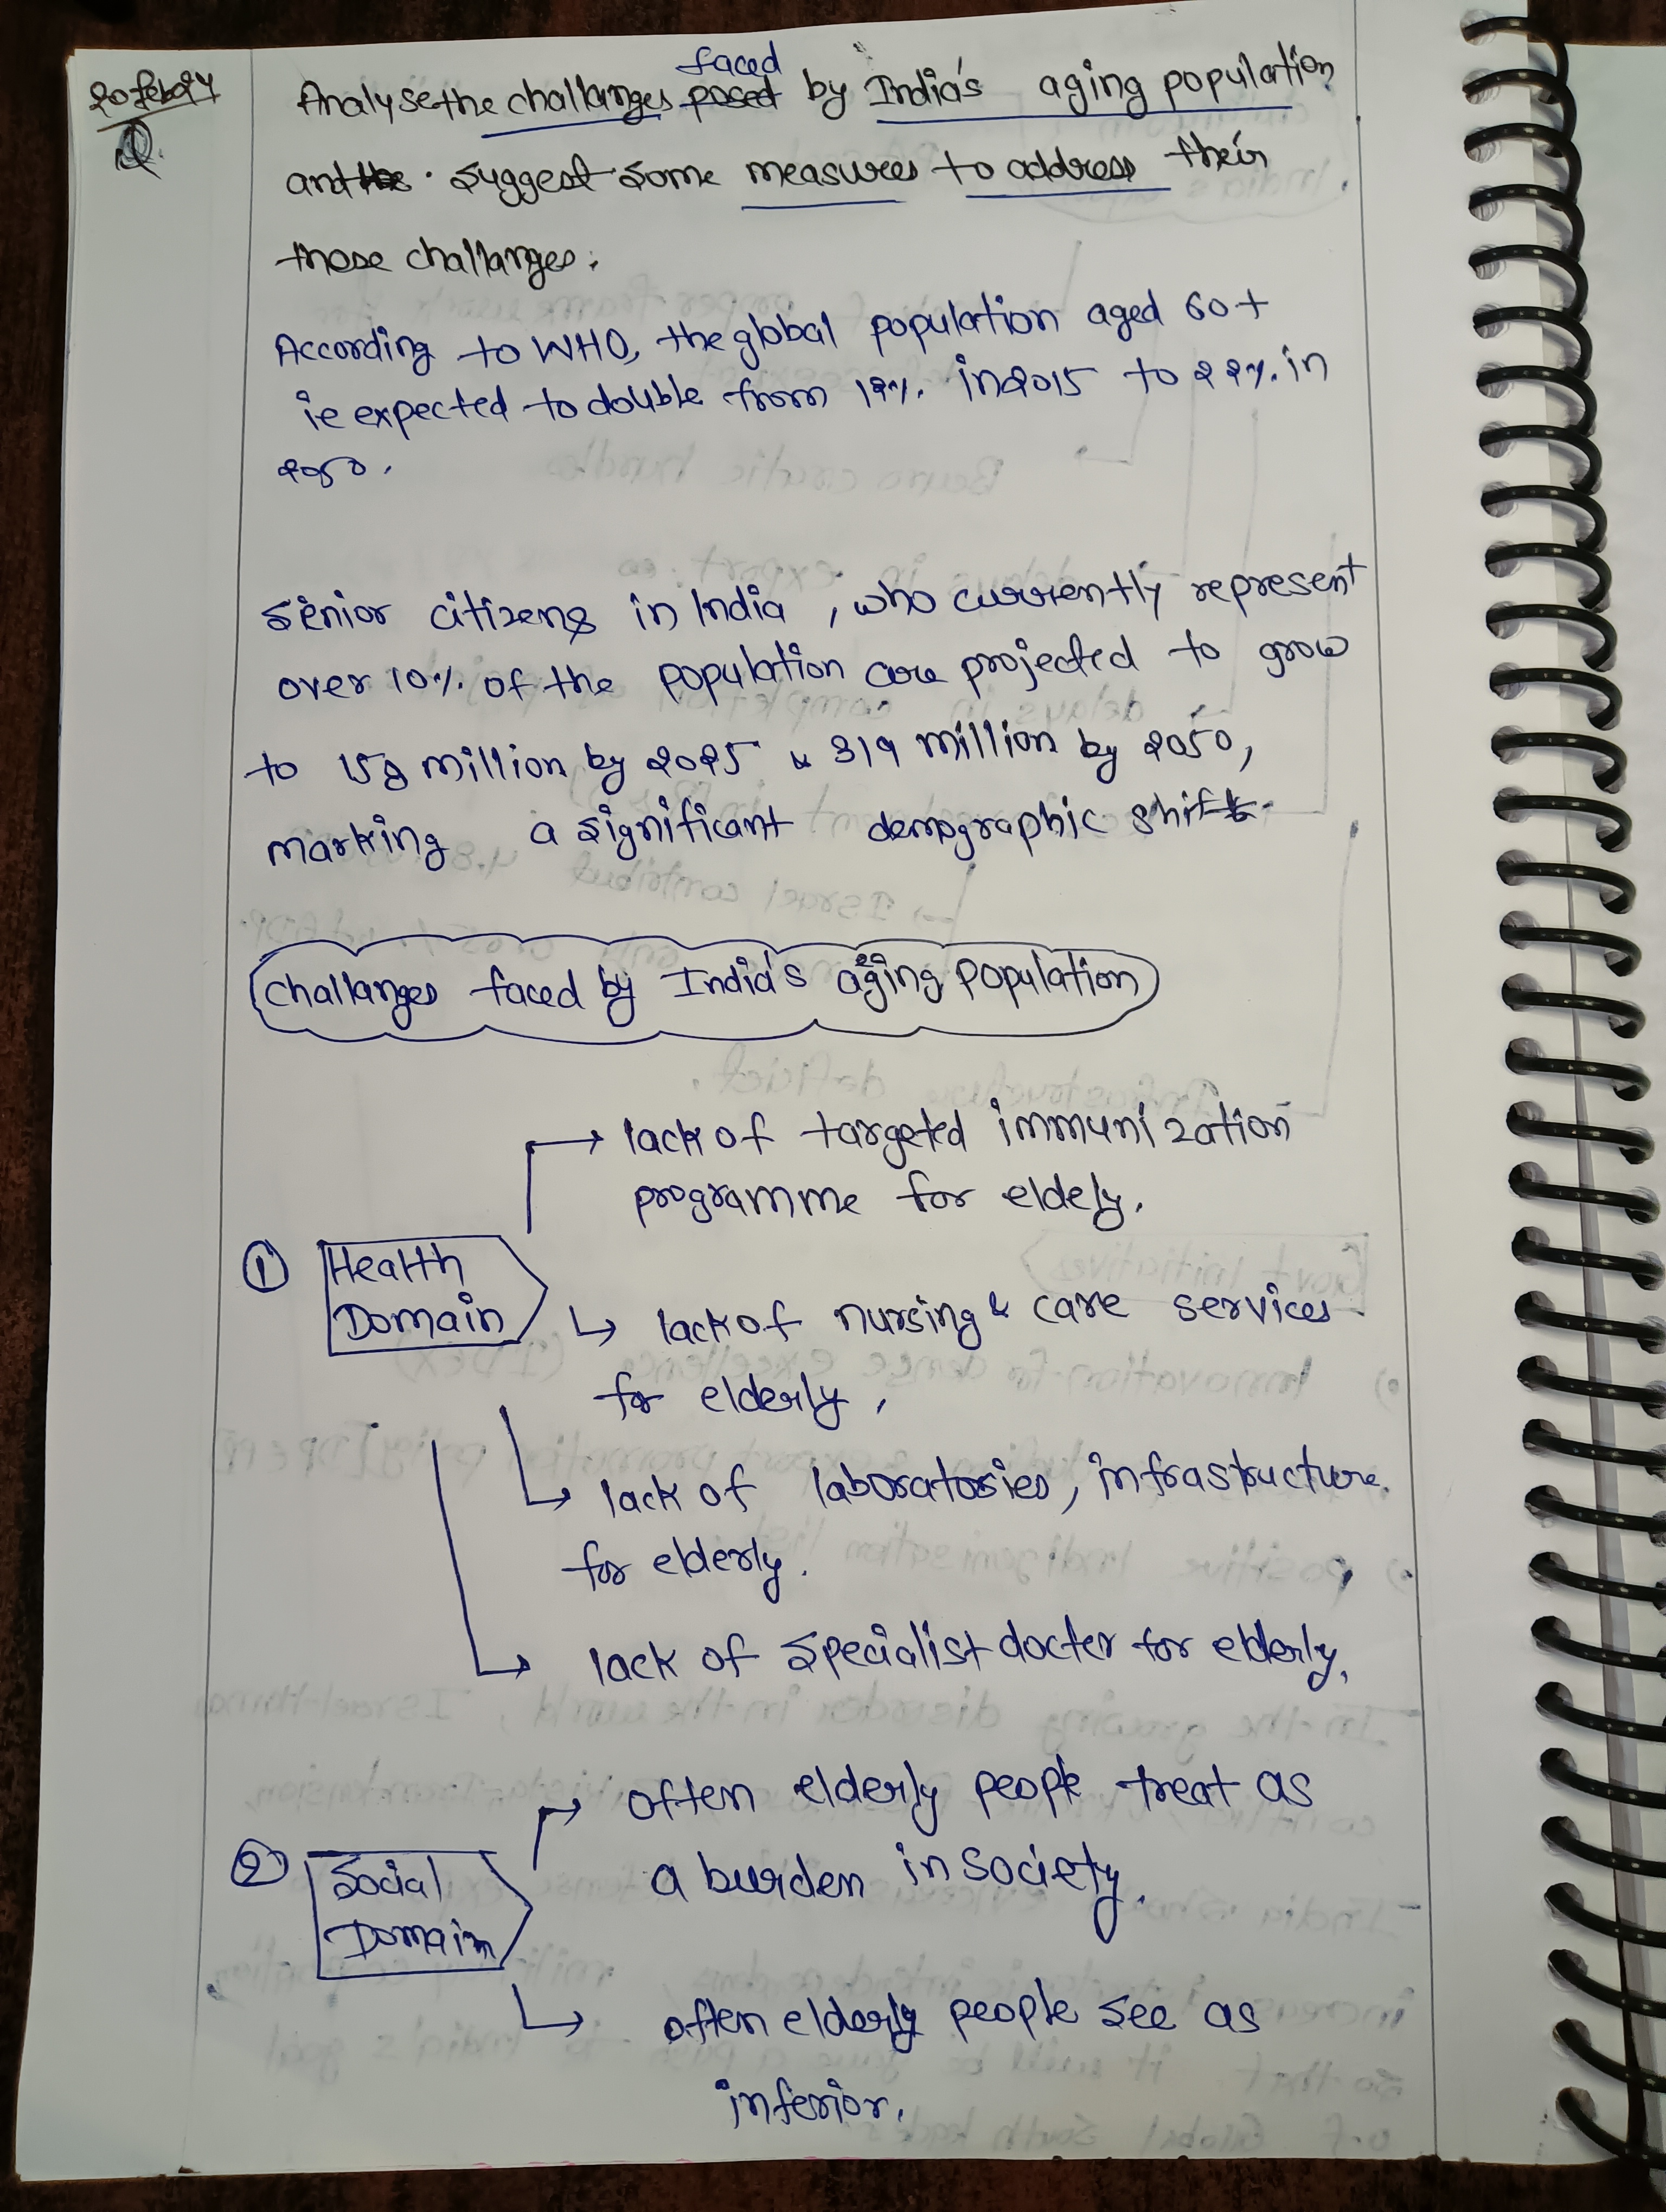 20 Feb 24
Q.
faced
Analyse the challanges posed by India's aging population
and the suggest some measures to address their
these challanges.
According to WHO, the global population aged 60+
ie expected to double from 12%. in 2015 to 22%. in
2050.
Senior citizens in India, who currently represent
over 10%. of the population are projected to grow
to 158 million by 2025 & 319 million by 2050,
marking a significant demographic shift.
Challanges faced by India's aging population
→ lack of targeted immunization
programme for eldely.
① Health
Domain
↳ lack of nursing & care services
for elderly,
↳ lack of laboratories, infrastructure
for elderly.
↳ lack of specialist docter for elderly,
→ often elderly people treat as
a burden in society.
② Social
Domain
↳ often elderly people see as
inferior.